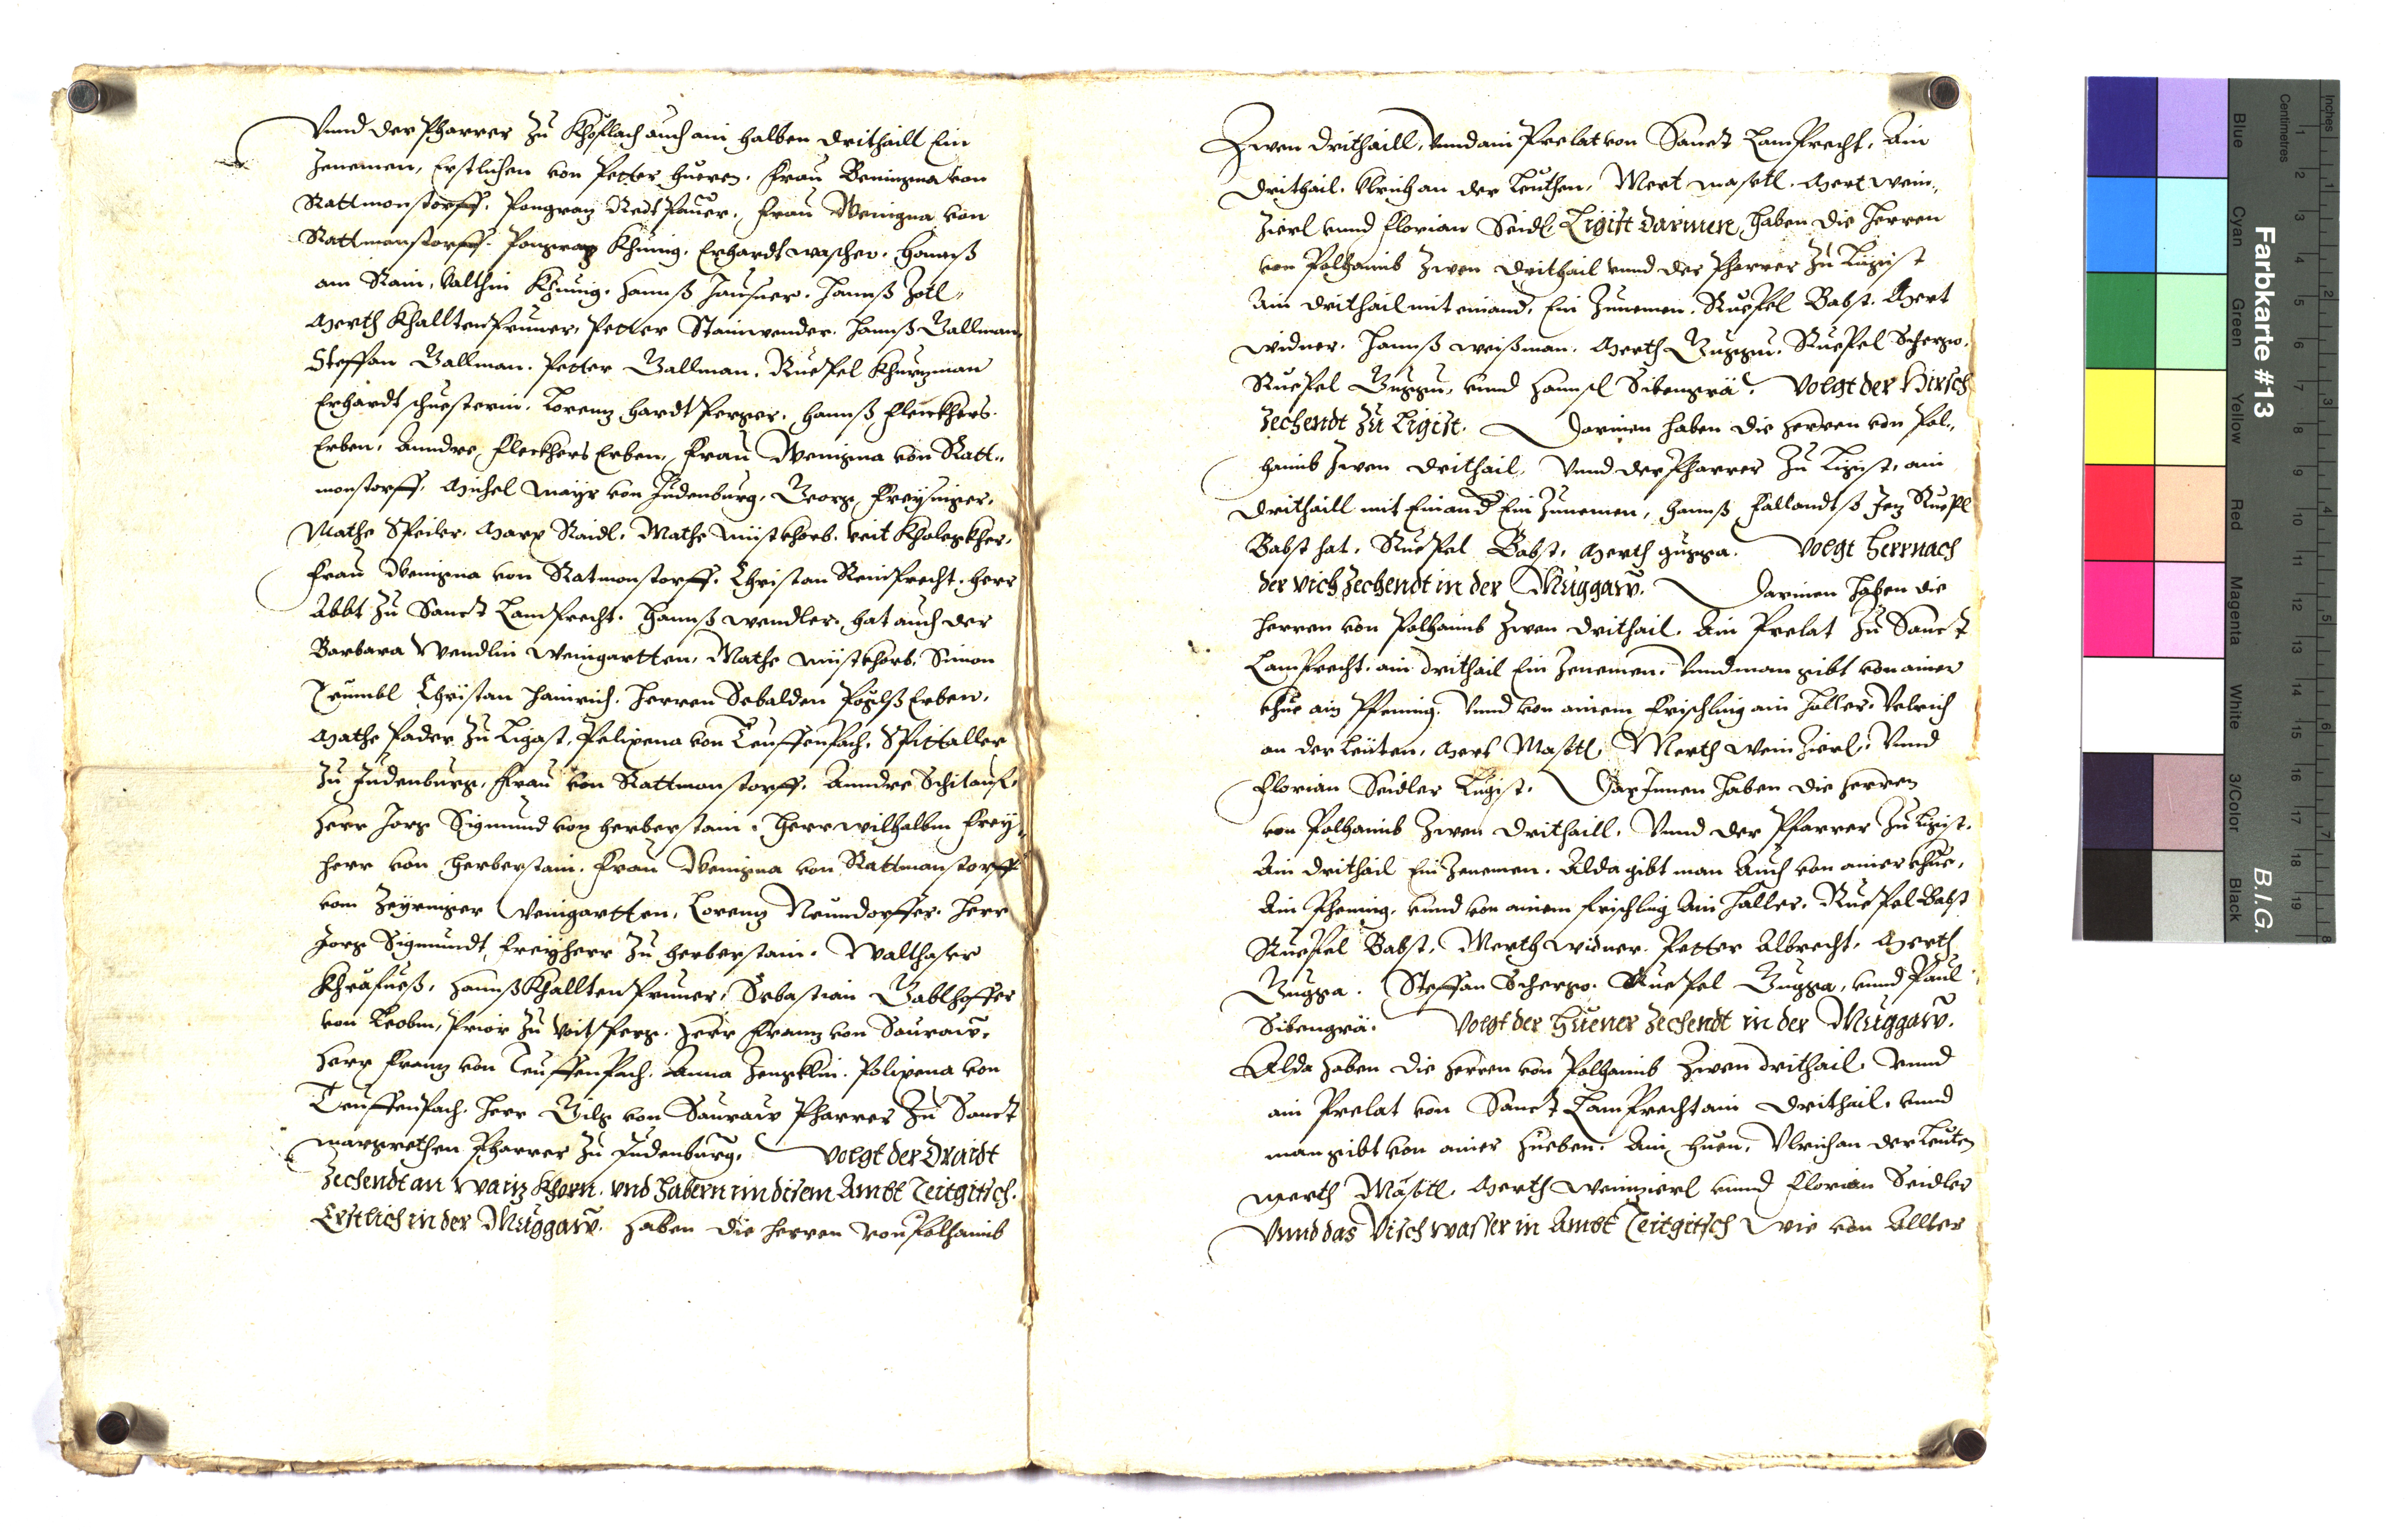 Vnnd der Pharrer zu Khöflach auch ain halben drithaill Ein
Zenemen, Erstlichen von Petter hueren. Frau Beningna von
Rattmonstorff. Pongraz Redtpauer. Frau Wenigna von
Rattmanstorff. Pongraz Khünig. Erhardt wascher. Hannß
am Rain, Valthin Khünig. Hannß Hausner. Hannß Zotl,,
Merth Khalltenpruner, Petter Stainwender. Hannß Gallman,
Steffan Gallman. Petter Gallman. Ruepel Khurzman
Erhardt schuesterin. Lorenz hardtperger. Hannß Fleckhers
Erben. Anndre Fleckhers Erben, Frau Wenigna von Ratt,,
monstorff. Michel Mayr von Judenburg, Georg Freysinger,
Mathe Speiler. Marx Raidl. Mathe mistkhorb. Veit
Frau Wenigna von Ratmonstorff. Christan Reinprecht. herr
Abbt zu Sanct Lamprecht. Hannß Wendler, hat auch der
Barbara Wendlin Weingartten, Mathe mistkhorb. Simon
Trumbl Christan Hainrich. Herren Sebalden Pöglß Erben.
Mathe Pader zu Ligast, Polixena von Teuffenpach. Spittaller
zu Judenburg, Frau von Rattmonstorff. Anndre
Herr Jorg Sigmund von Herberstain. Herr wilhalbm Frey,,
herr von Herberstain. Frau Wenigna von Rattmanstorff
vom Zeyringer Weingartten, Lorenz Neundorffer. Herr
Jorg Sigmundt Freyherr zu Herberstain. Walthaser
Khräfueß, Hannß Khalltenpruner, Sebastian Gablhoffer
von Leobm, Prior zu Voitsperg. Herr Franz von Sauraw.
Herr Franz von Teuffenpach. Anna Polixena von
Teuffenpach. Herr Gilg von Sauraw Pharrer zu Sanct
Margrethen Pharrer zu Judenburg. Volgt der Draidt
Zechendt an Waiz Khorn. vnd habern in disem Ambt Teitgitsch.
Erstlich in der Muggaw. Haben die Herren von Polhaimb
Zwen drithaill, vnnd ain Prelat von Sanct Lamprecht, Ain
drithail. Vlrich an der Leuthen, Mert mastl. Mert wein,,
zierl vnnd Florian Seidl. Ligist darinen, haben die Herren
von Polhaimb zwen drithail vnnd der Pharrer zu Ligist
Ain drithail mit einand, Ein zunemen. Ruepel Babst. Mert
widner. Hannß weißman. Merth Guggu. Ruepel Scherzo.
Ruepel Guggu, vnnd Hannsl Sibengrä. Volgt der Hirsch
Zechendt zu Ligist. Darinen haben die Herren von Pol,,
haimb zwen drithail, Vnnd der Pharrer zu Ligist, ain
drithaill mit Einand Ein Zunemen, Hannß Fallandtß Jez Ruepl
Babst hat. Ruepel Babst, Merth Gugga. Volgt hernach
der vich zechendt in der Muggaw. Darinen haben die
Herren von Polhaimb zwen drithail. Ain Prelat zu Sanct
Lamprecht, ain drithail Ein Zenemen. Vnnd man gibt von ainer
Khue ain Pfening. Vnnd von ainem Frischling ain Haller. Velrich
an der Leuten, Mert Mastl, Merth Weinzierl, Vnnd
Florian Seidler Ligist. Darinnen haben die Herren
von Polhaimb zwen drithaill. Vnnd der Pfarrer zu Ligist.
Ain drithail Ein Zenemen. Alda gibt man Auch von ainer khue,
Ain Phening, vnnd von ainem frischling Ain Haller, Ruepel Babst
Ruepel Babst, Merth widner. Petter Albrecht, Merth
Gugga. Steffan Scherzo. Ruepel Gugga, vnnd Paul
Sibengrä. Volgt der Huener Zechendt in der Muggaw.
Alda haben die Herren von Polhaimb zwen drithail, vnnd
ain Prelat von Sanct Lamprecht ain drithail. vnnd
man gibt von ainer Hueben. Ain Huen, Vlrich an der Leuten
Merth Mästl. Merth Weinzierl vnnd Florian Seidler
Vnnd das Visch wasser in Ambt Teitgitsch Wie von Allter
Farbkarte #13
B.I.G.
Inches
Centimetres
Blue Cyan Green Yellow Red Magenta White 3/Color Black
1 2 3 4 5 6 7 8 9 10 11 12 13 14 15 16 17 18 19
1 2 3 4 5 6 7 8